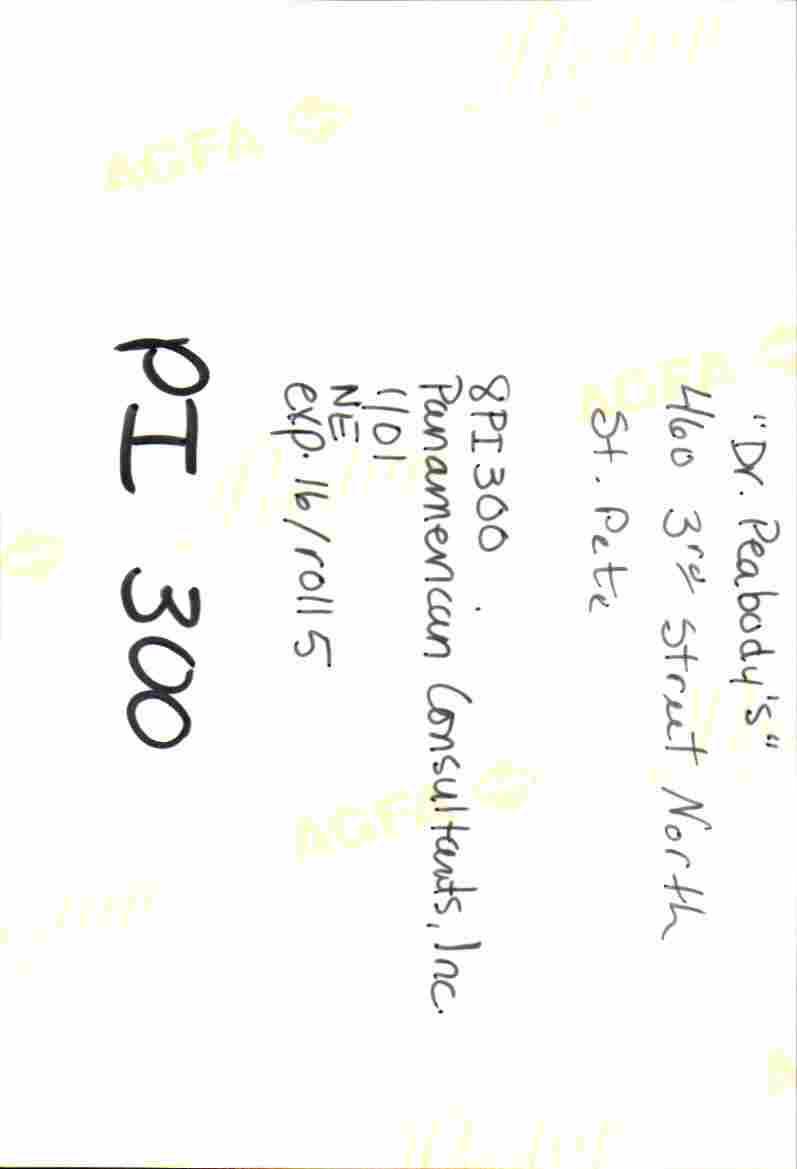 "Dr. Peabody's"
460 3rd Street North
St. Pete
8PI300
Panamerican Consultants, Inc.
1/01
NE
exp. 16/roll 5
PI 300
AGFA
AGFA
AGFA